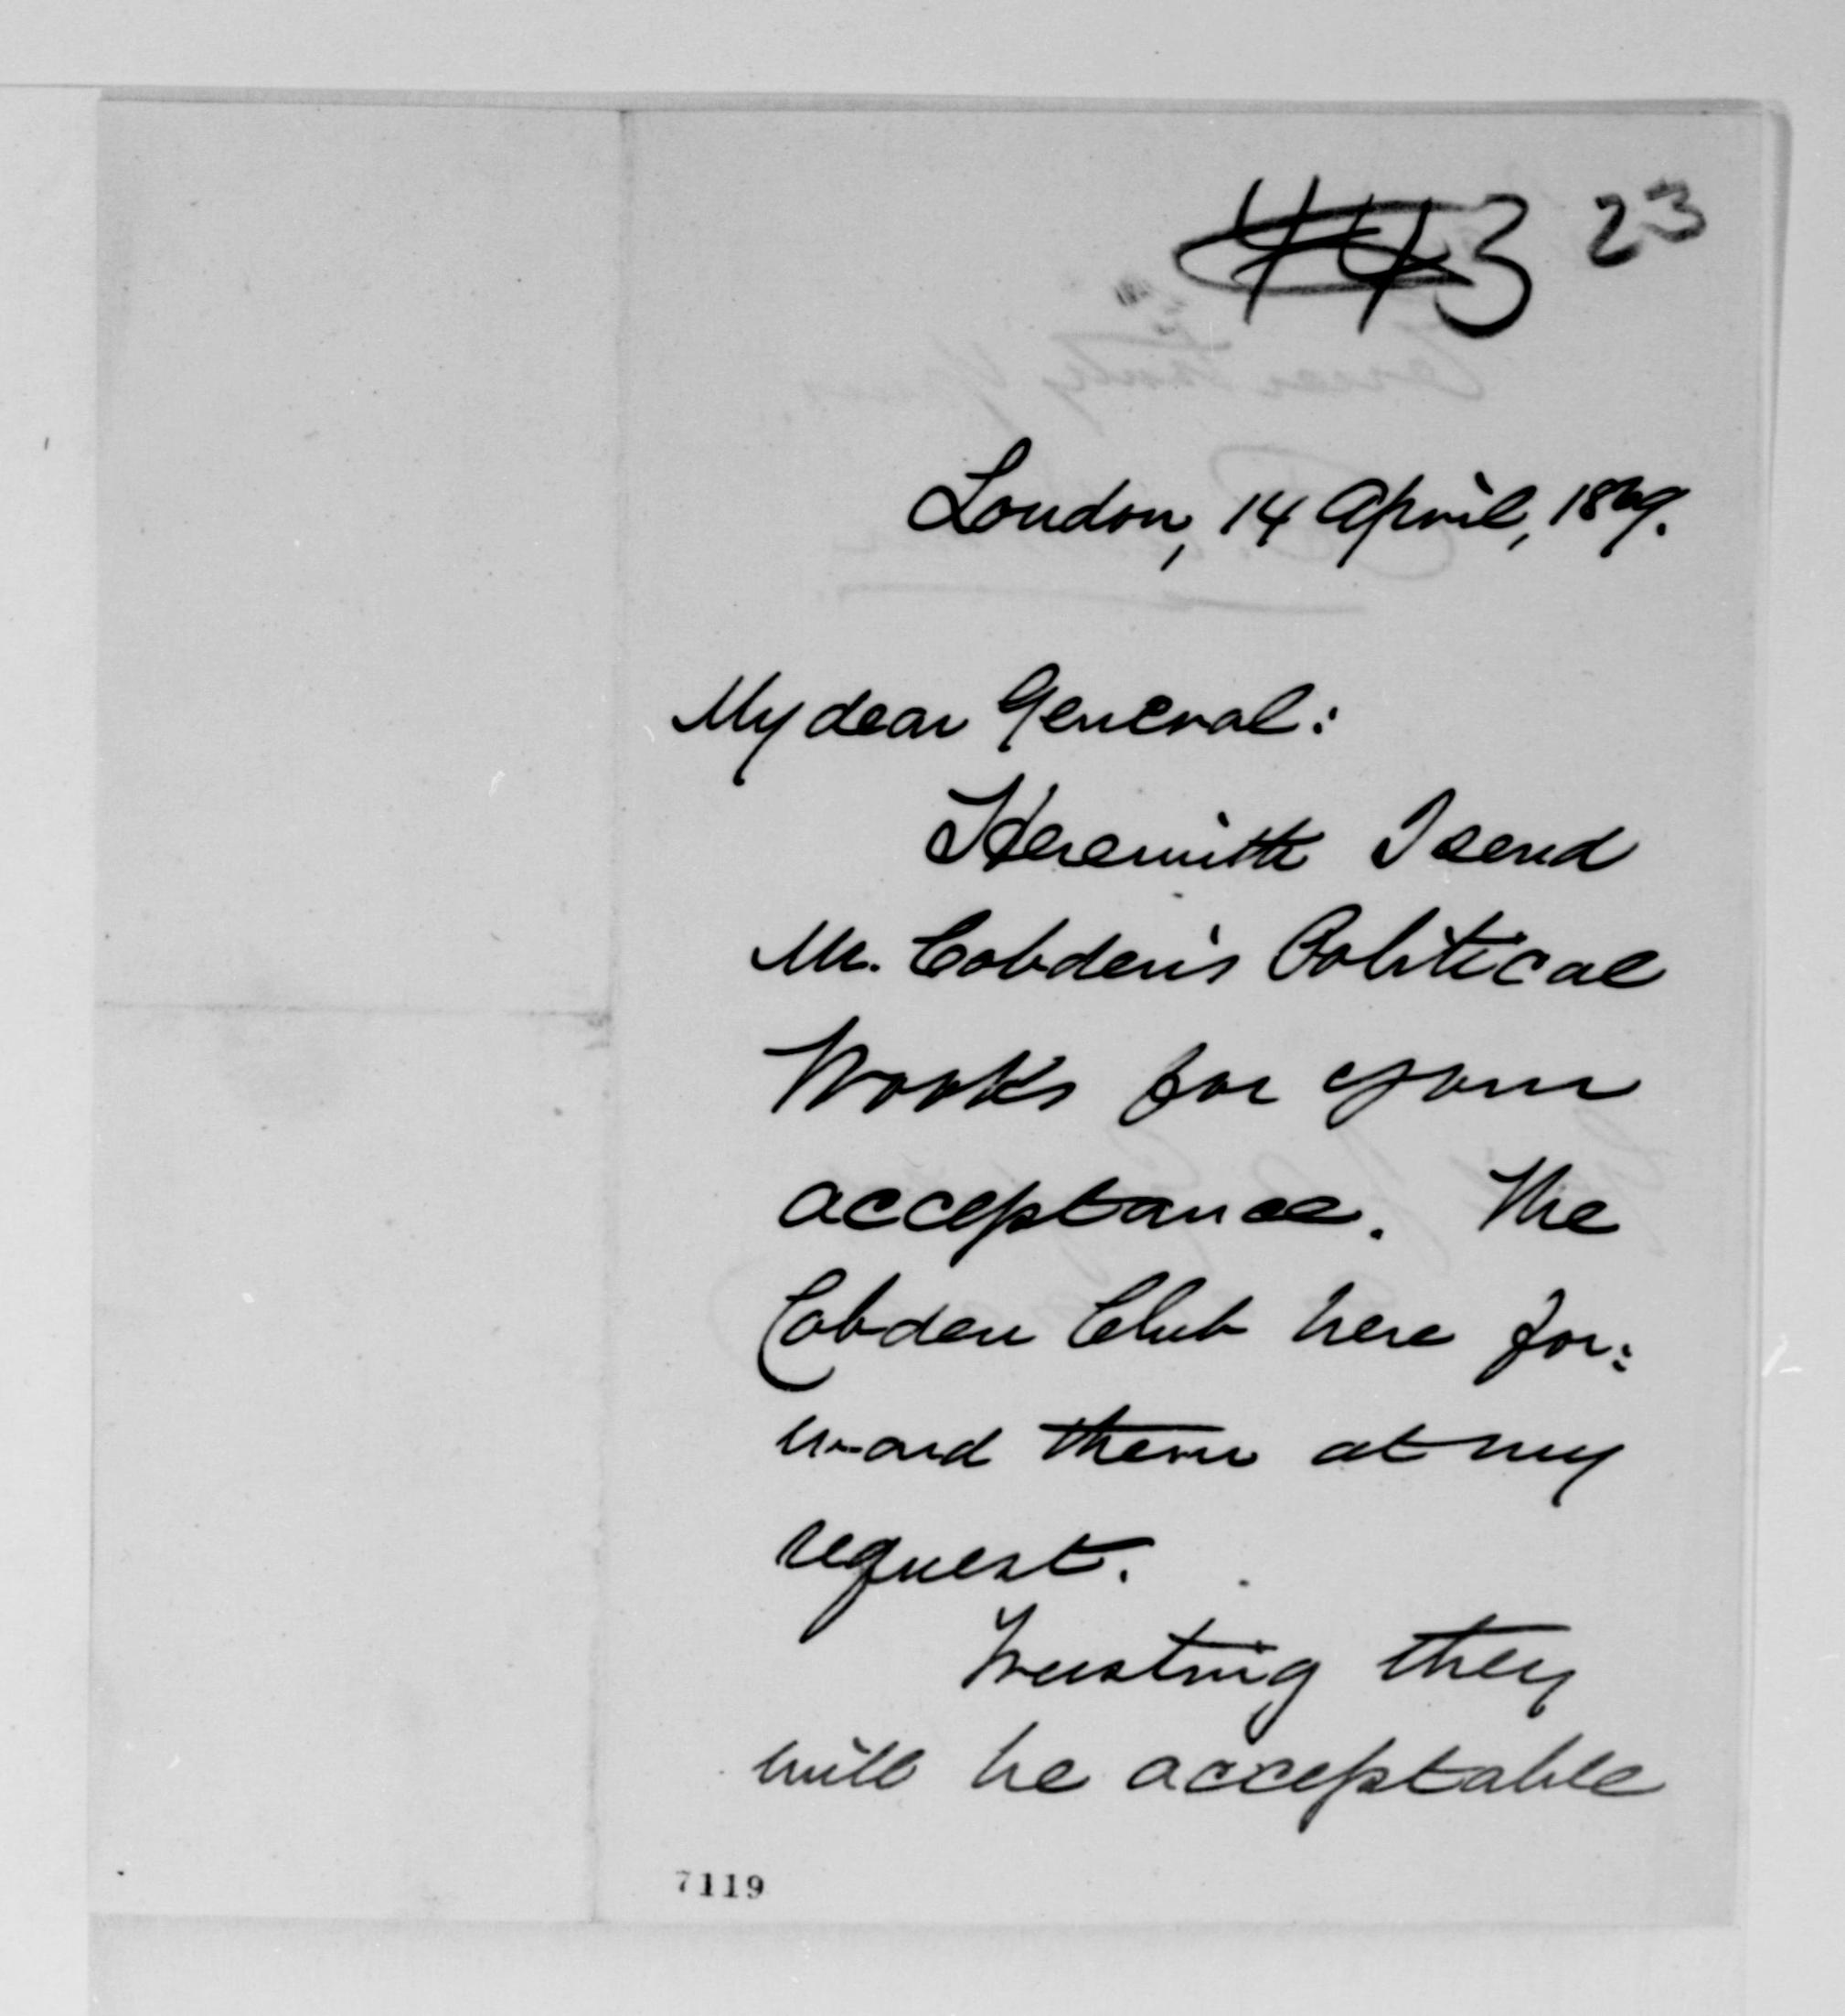 443 23
London, 14 April, 1869.
My dear General:
Herewith I send
Mr. Cobden's Political
Works for your
acceptance. The
Cobden Club here for:
ward them at my
request.
Trusting they
will be acceptable
7119